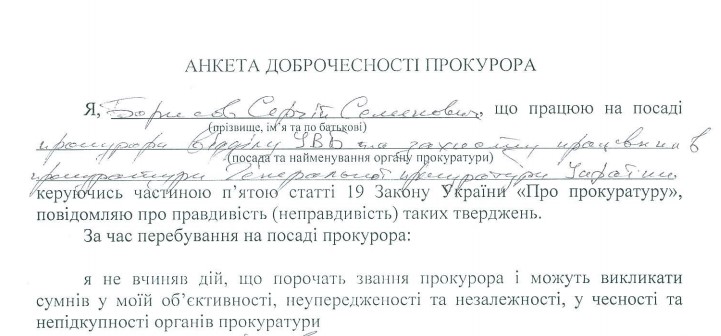 АНКЕТА ДОБРОЧЕСНОСТІ ПРОКУРОРА
Я, Борисов Сергій Семенович, що працюю на посаді
(прізвище, ім’я та по батькові)
прокурора відділу УВБ та захисту працівників
(посада та найменування органу прокуратури)
прокуратури Генеральної прокуратури України
керуючись частиною п’ятою статті 19 Закону України «Про прокуратуру»,
повідомляю про правдивість (неправдивість) таких тверджень.
За час перебування на посаді прокурора:
я не вчиняв дій, що порочать звання прокурора і можуть викликати
сумнів у моїй об’єктивності, неупередженості та незалежності, у чесності та
непідкупності органів прокуратури